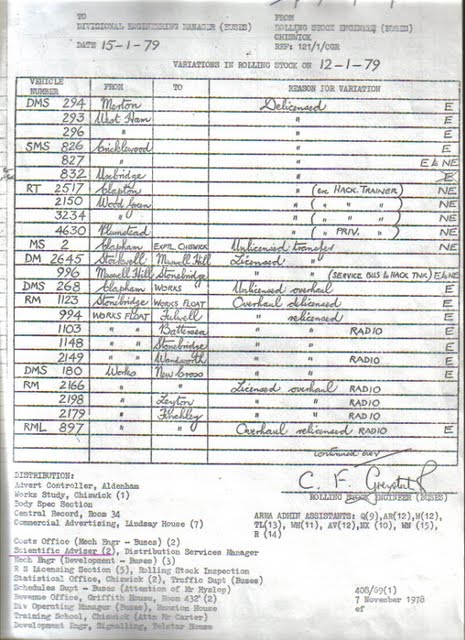 TO FROM
DIVISIONAL ENGINEERING MANAGER (BUSES) ROLLING STOCK ENGINEER (BUSES)
CHISWICK
DATE 15-1-79 REF: 121/1/CGR
VARIATIONS IN ROLLING STOCK ON 12-1-79
VEHICLE NUMBER FROM TO REASON FOR VARIATION
DMS 294 Merton Delicensed E
293 West Ham " E
296 " " E
SMS 826 Cricklewood " E
827 " " E & NE
832 Uxbridge " E
RT 2517 Clapton " (ex HACK. TRAINER) NE
2150 Wood Green " ( " " " ) NE
3234 " " ( " " " ) NE
4630 Plumstead " ( " PRIV. " ) NE
MS 2 Clapham EXPTL CHISWICK Unlicensed transfer NE
DM 2645 Stockwell Muswell Hill Licensed " E
996 Muswell Hill Stonebridge " " (SERVICE BUS to HACK TNR) E & NE
DMS 268 Clapham WORKS Unlicensed overhaul E
RM 1123 Stonebridge WORKS FLOAT Overhaul delicensed E
994 WORKS FLOAT Fulwell " relicensed E
1103 " " Battersea " " RADIO E
1148 " " Stonebridge " " E
2149 " " Wandsworth " " RADIO E
DMS 180 Works New Cross " " E
RM 2166 " " Licensed overhaul RADIO
2198 " Leyton " " RADIO
2179 " Finchley " " RADIO
RML 897 " " Overhaul relicensed RADIO E
continued over
DISTRIBUTION:
Advert Controller, Aldenham
Works Study, Chiswick (1)
Body Spec Section
Central Record, Room 34
Commercial Advertising, Lindsay House (7)
ROLLING STOCK ENGINEER (BUSES)
AREA ADMIN ASSISTANTS: Q(9), AR(12), W(12),
TL(13), WH(11), AV(12), NX (10), WN (15),
R (14)
Costs Office (Mech Engr - Buses) (2)
Scientific Adviser (2), Distribution Services Manager
Mech Engr (Development - Buses) (3)
R S Licensing Section (5), Rolling Stock Inspection
Statistical Office, Chiswick (2), Traffic Dept (Buses)
Schedules Supt - Buses (Attention of Mr Hyslop)
Revenue Office, Griffith House, Room 432 (2)
Div Operating Manager (Buses), Mansion House
Training School, Chiswick (Attn Mr Carter)
Development Engr, Signalling, Telstar House
408/69(1)
7 November 1978
ef